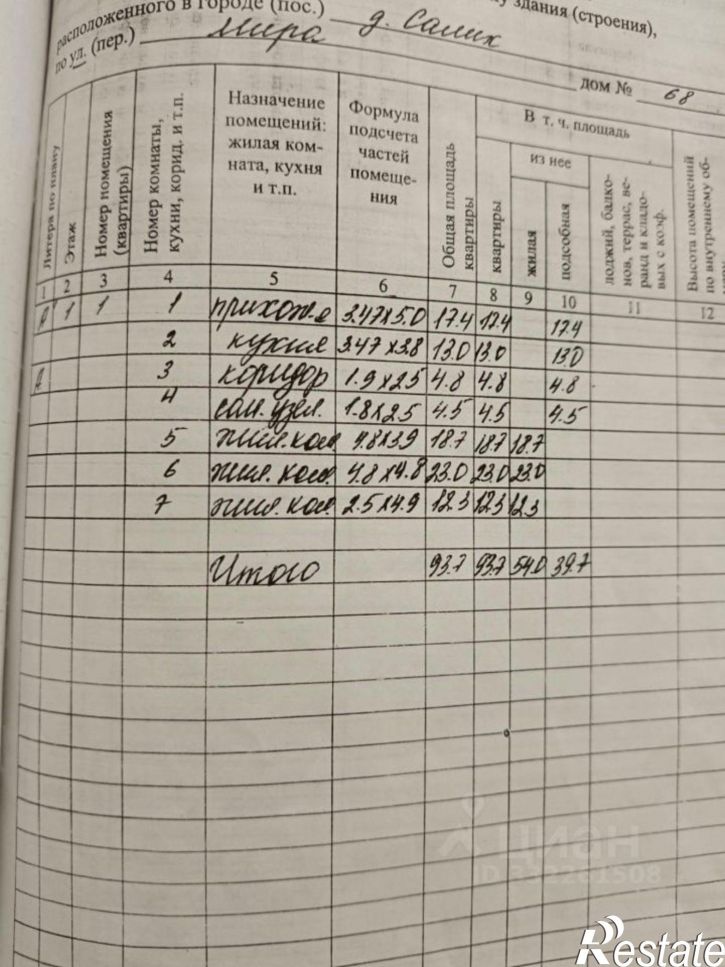 здания (строения),
расположенного в городе (пос.) д. Салих
по ул. (пер.) Мира дом № 68
Литера по плану
Этаж
Номер помещения (квартиры)
Номер комнаты, кухни, корид. и т.п.
Назначение помещений: жилая ком-ната, кухня и т.п.
Формула подсчета частей помеще-ния
Общая площадь квартиры
В т. ч. площадь
квартиры
из нее
жилая
подсобная
лоджий, балко-нов, террас, ве-ранд и кладо-вых с коэф.
Высота помещений по внутреннему об-
1 2 3 4 5 6 7 8 9 10 11 12
А 1 1 1 прихож.я 3.47х5.0 17.4 17.4 17.4
2 кухня 3.47х3.8 13.0 13.0 13.0
А 3 коридор 1.9х2.5 4.8 4.8 4.8
4 сан.узел. 1.8х2.5 4.5 4.5 4.5
5 жил.ком 4.8х3.9 18.7 18.7 18.7
6 жил.ком. 4.8х4.8 23.0 23.0 23.0
7 жил.ком. 2.5х4.9 12.3 12.3 12.3
Итого 93.7 93.7 54.0 39.7
циан
ID 332261508
Restate